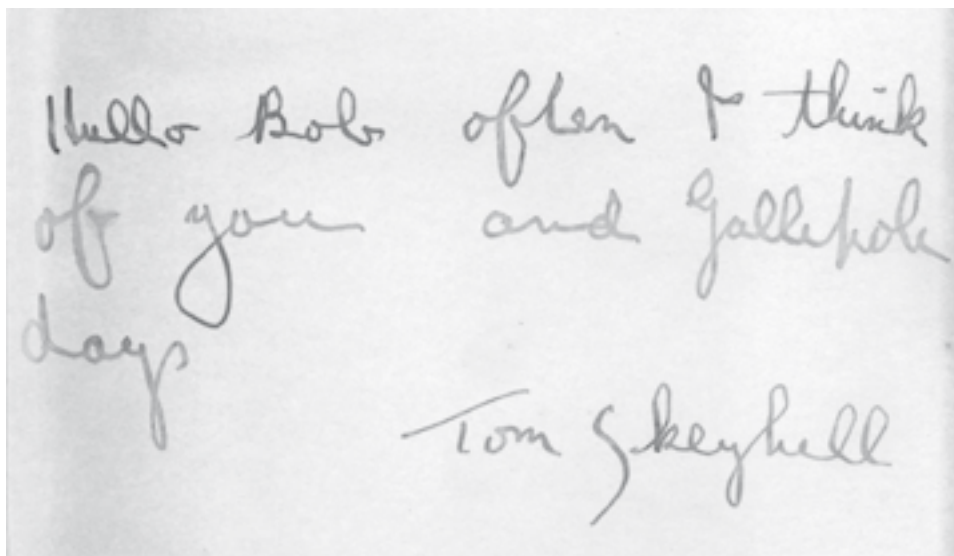 Hello Bob often I think
of you and Gallipoli
days
Tom Skeyhill